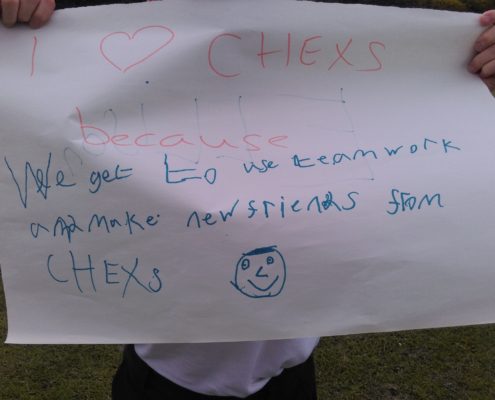 I ♡ CHEXS
because
We get to use teamwork
and make new friends from
CHEXS